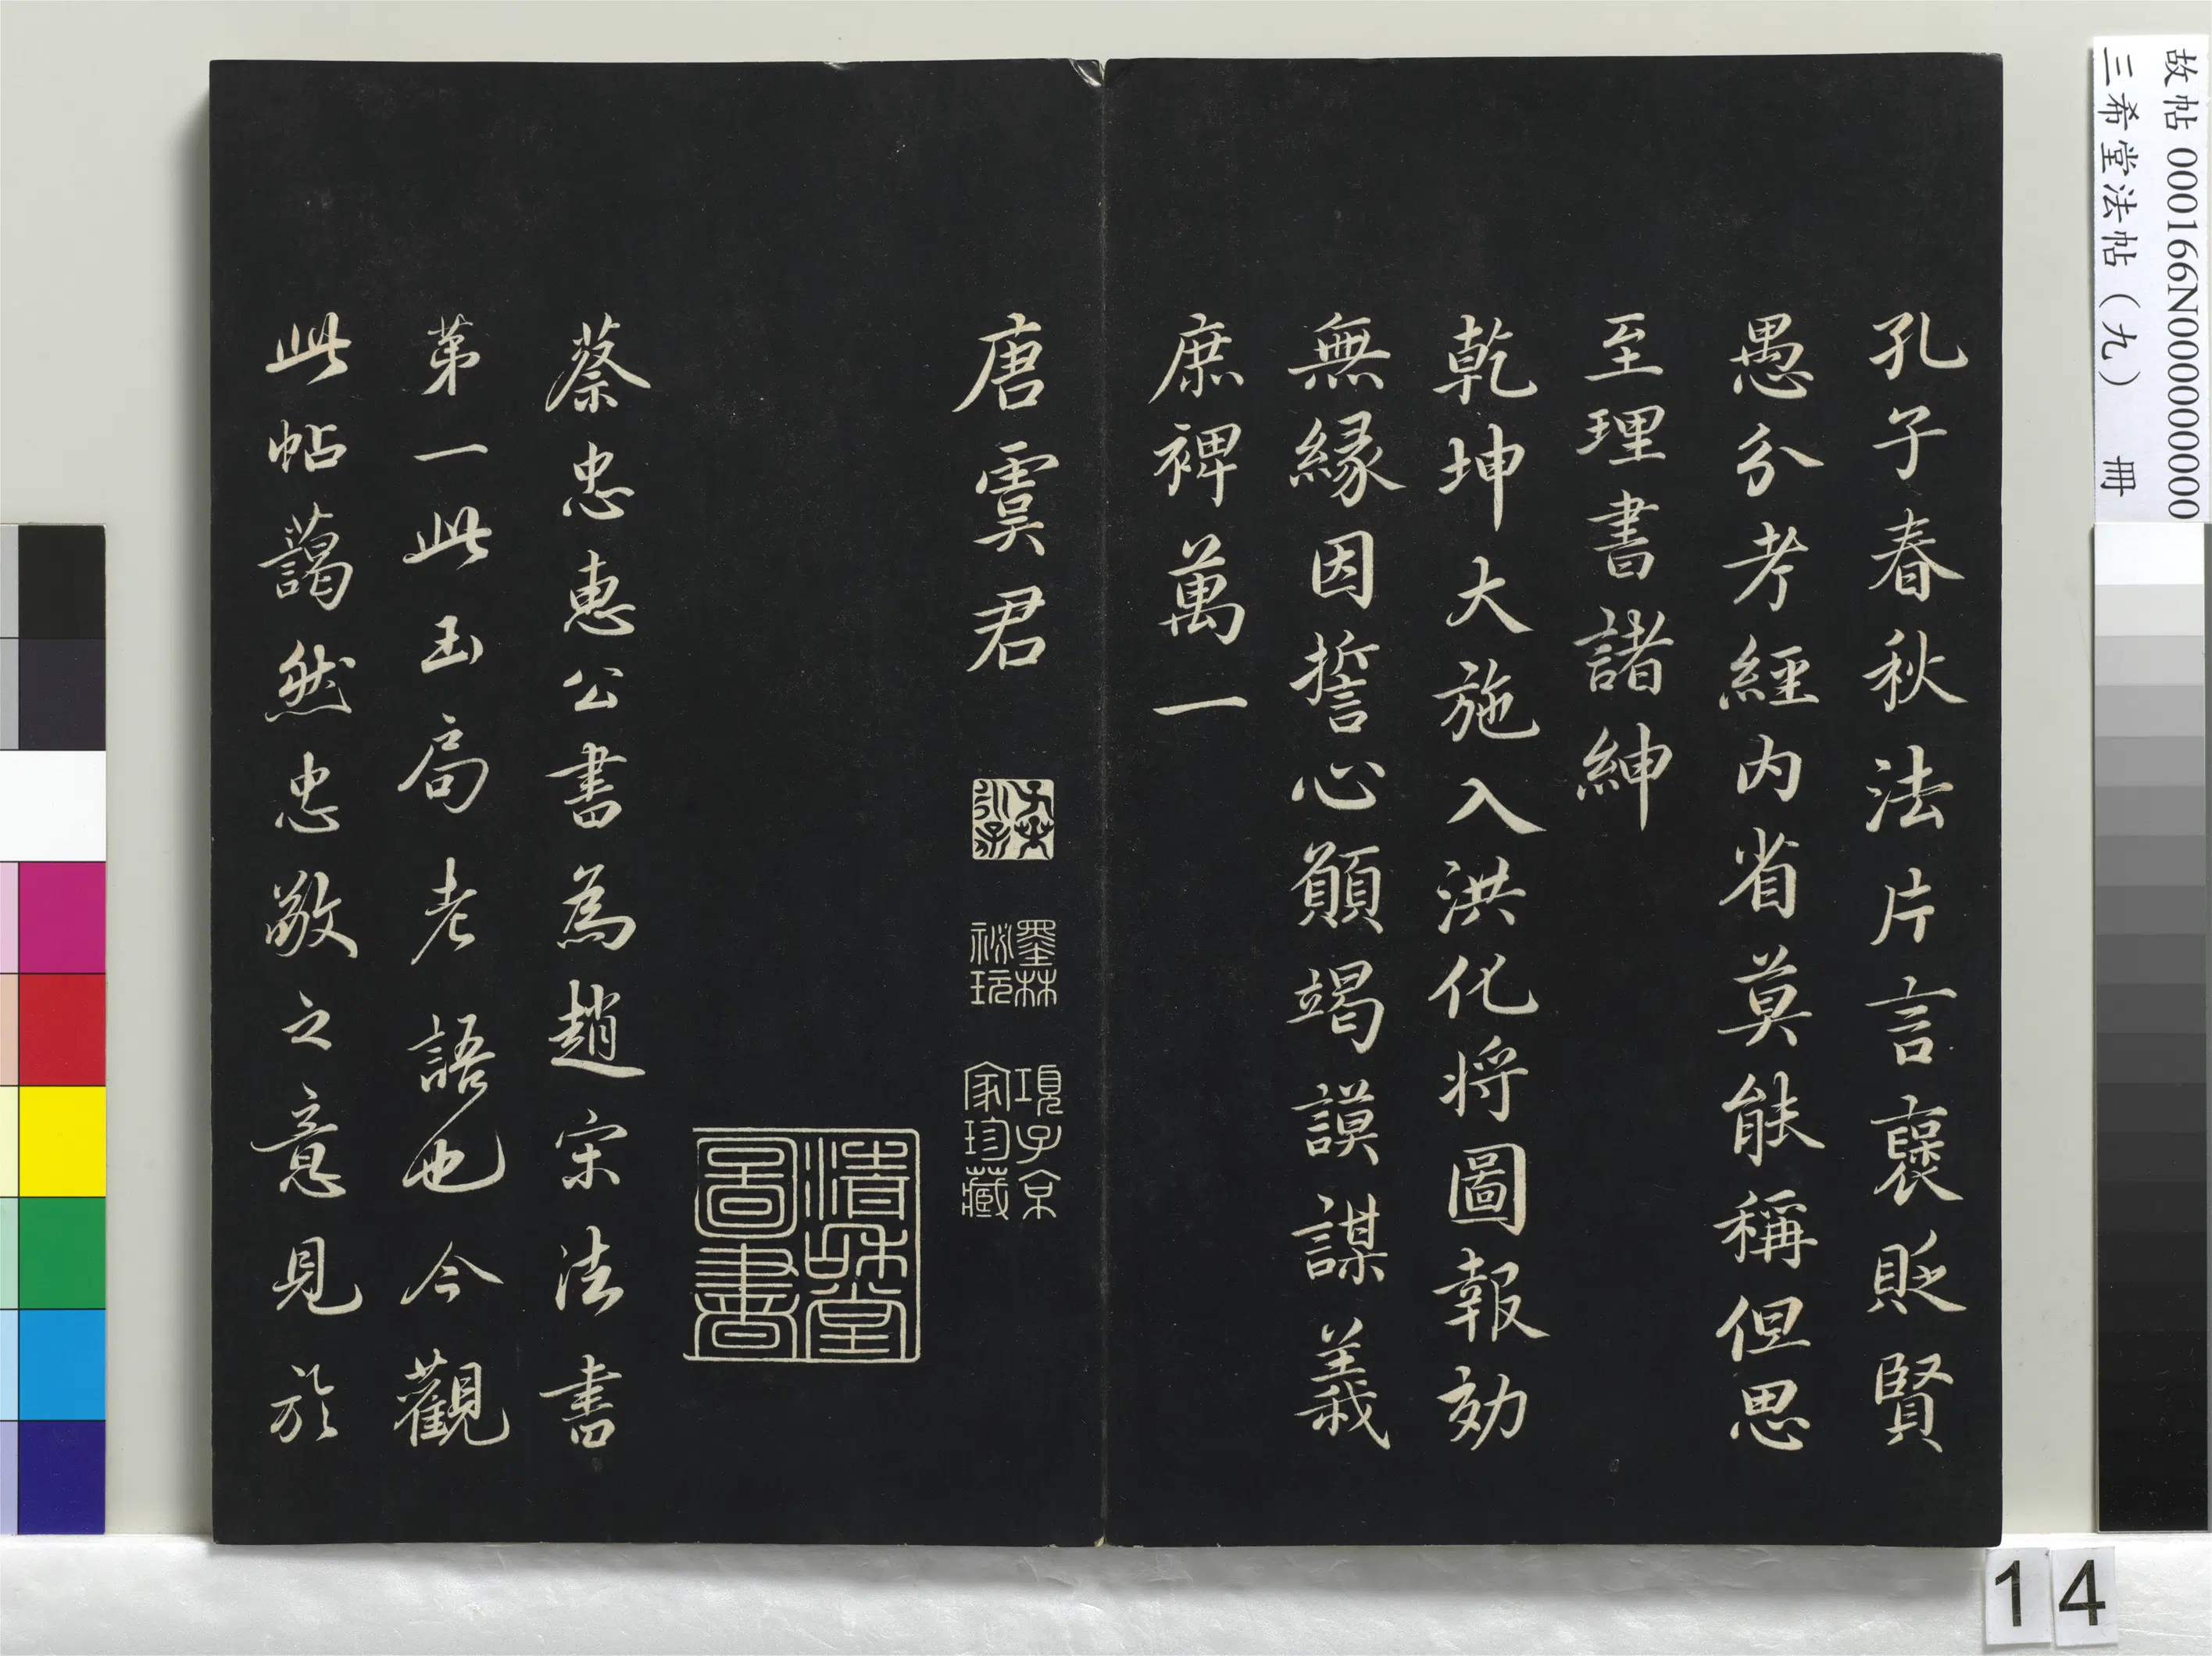 故帖 000166N000000000
三希堂法帖（九） 冊
孔子春秋法片言襃貶賢
愚分考經内省莫能稱但思
至理書諸紳
乾坤大施入洪化将圖報効
無縁因誓心願竭謨謀義
庶裨萬一
唐虞君
墨林
祕玩
項子京
家珍藏
蔡忠惠公書為趙宋法書
第一此玉局老語也今觀
此帖藹然忠敬之意見於
14